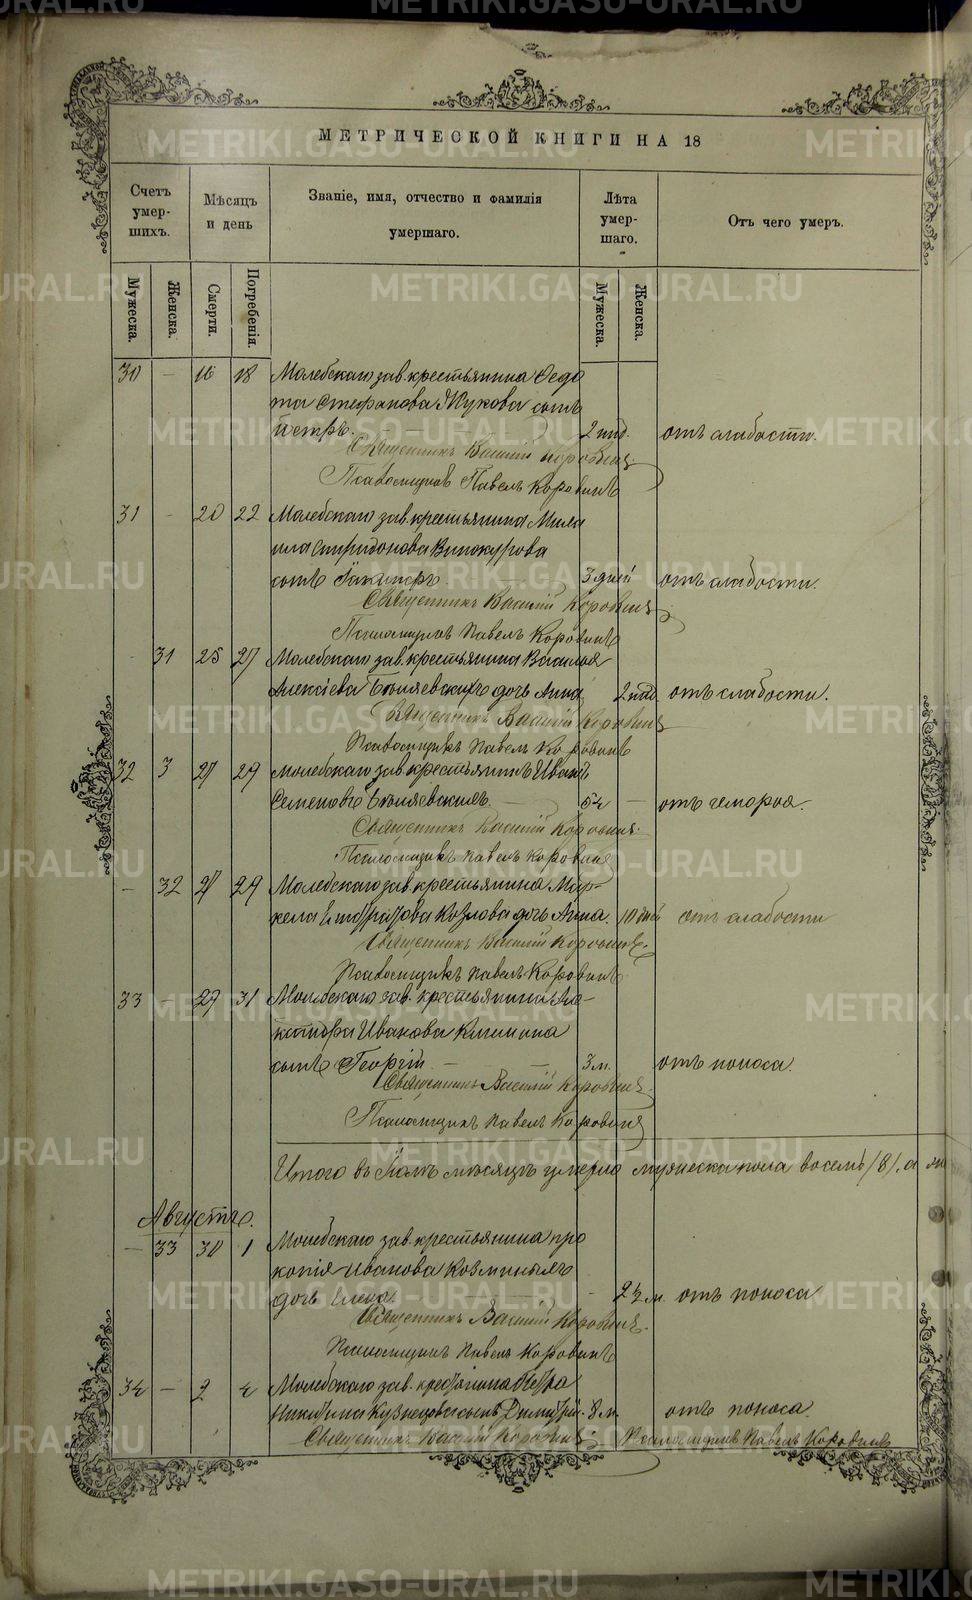 МЕТРИЧЕСКОЙ КНИГИ НА 18
Счетъ умер- шихъ.
Мѣсяцъ и день
Званіе, имя, отчество и фамилія умершаго.
Лѣта умер- шаго.
Отъ чего умеръ.
Мужеска.
Женска.
Смерти.
Погребенія.
Мужеска.
Женска.
30 – 16 18 Молебскаго зав. крестьянина Ѳедо
та Стефанова Жукова сынъ
Петръ. 2 нед. отъ слабости.
Священникъ Василій Коровинъ
Псаломщикъ Павелъ Коровинъ
31 – 20 22 Молебскаго зав. крестьянина
Спиридонова Винокурова
сынъ 3 дней отъ слабости.
Священникъ Василій Коровинъ
Псаломщикъ Павелъ Коровинъ
31 25 27 Молебскаго зав. крестьянина Василья
Алексіева Бѣляевскихъ дочь Анна 2 нед. отъ слабости.
Священникъ Василій Коровинъ
Псаломщикъ Павелъ Коровинъ
32 27 29 Молебскаго зав. крестьянинъ Иванъ
Семеновъ Бѣляевскихъ 54 – отъ гемороя.
Священникъ Василій Коровинъ
Псаломщикъ Павелъ Коровинъ
– 32 27 29 Молебскаго зав. крестьянина Мар-
кела Козлова дочь Анна. 10 дней отъ слабости
Священникъ Василій Коровинъ
Псаломщикъ Павелъ Коровинъ
33 – 29 31 Молебскаго зав. крестьянина
Иванова
сынъ Георгій – 3 м. отъ поноса.
Священникъ Василій Коровинъ
Псаломщикъ Павелъ Коровинъ
Итого въ Іюлѣ мѣсяцѣ умерло мужеска пола восемь (8), а
Августъ.
– 33 30 1 Молебскаго зав. крестьянина Про
копія Иванова Козминыхъ
дочь Елена. – 2½ м. отъ поноса
Священникъ Василій Коровинъ
Псаломщикъ Павелъ Коровинъ
34 – 2 4 Молебскаго зав. крестьянина Петра
Никитина Кузнецова сынъ Димитрій. 8 м. отъ поноса.
Священникъ Василій Коровинъ. Псаломщикъ Павелъ Коровинъ
METRIKI.GASO-URAL.RU